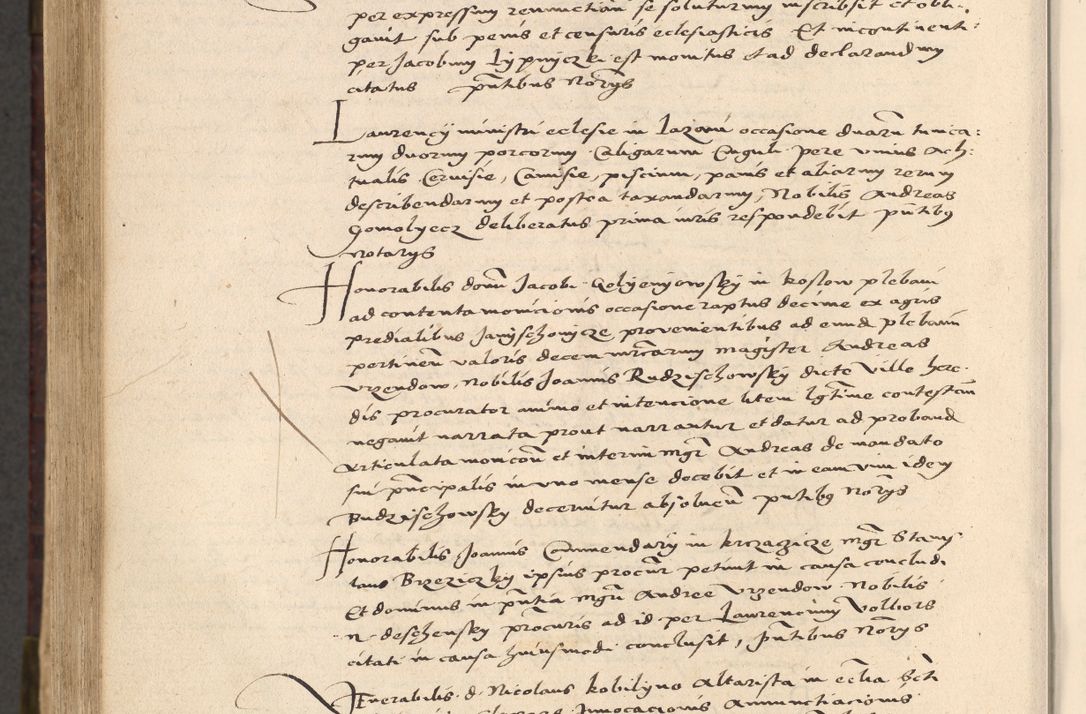 per expressum renunctiari se soluturum inscribsit et obli-
gavit sub penis et censuris eclesiasticis Et incontinenti
per Jacobum Lypnyczki est monitus et ad declarandum
citatus pntibus Norys
Laurency ministri eclesie in Lazoni occasione duaru tunica:
rum duorum porcorum Caligarum Caguli pere unius Ach:
tualis Cervisie, Camisie, piscium, panis et aliarum rerum
describendarum et postea taxandarum, Nobilis Andreas
Gomolyecz deliberatus prima iuris respondebit pntibus
Notarys
Honorabilis domi Jacobi in Koslow plebani
ad contenta monicionis occasione raptus decime ex agris
predialibus Janyschowycze provenientibus ad eund plebanu
pertinen valoris decem marcarum magister Andreas
Vrzendow, Nobilis Joannis Rudzischowsky dicte Ville here-
dis procurator animo et intencione litem lgtime contestan
negavit narrata prout narrantur et datur ad proband
Articulata monicon et interim mgr Andreas de mandato
sui principalis in uno mense docebit et in eam vim idem
Budzischowsky decernitur absolven pntibus Norys
Honorabilis Joannis Commendary in krczaczicze mgr Stany-
laus Brzeziczky ipsius procur petivit in causa concludi
Et dominus in pntia mgri Andree Vrzendow Nobilis
N deschensky procuris ad id per Laurencium Volbors
citati in causa huiusmodi conclusit, pntibus Norys
Venerabilis d. Nicolaus kobilyno Altarista in ecclia Scti
Invocacionis Annunctiacionis